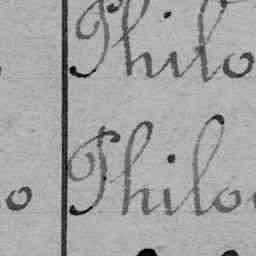 Philo
o Philo